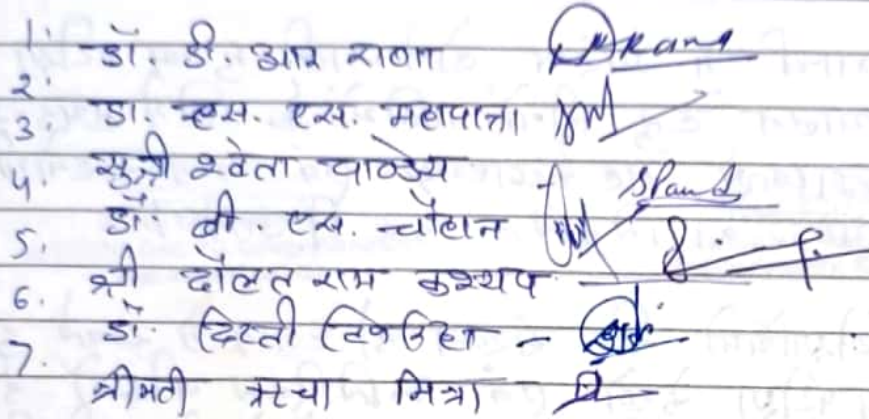 1. डॉ. डी. आर राणा
2. डा. एस. एस. महापात्रा
3. सुश्री श्वेता पाण्डेय
4. डॉ. बी. एस. चौहान
5. श्री दौलत राम कश्यप
6. डॉ.
7. श्रीमती ऋचा मिश्रा